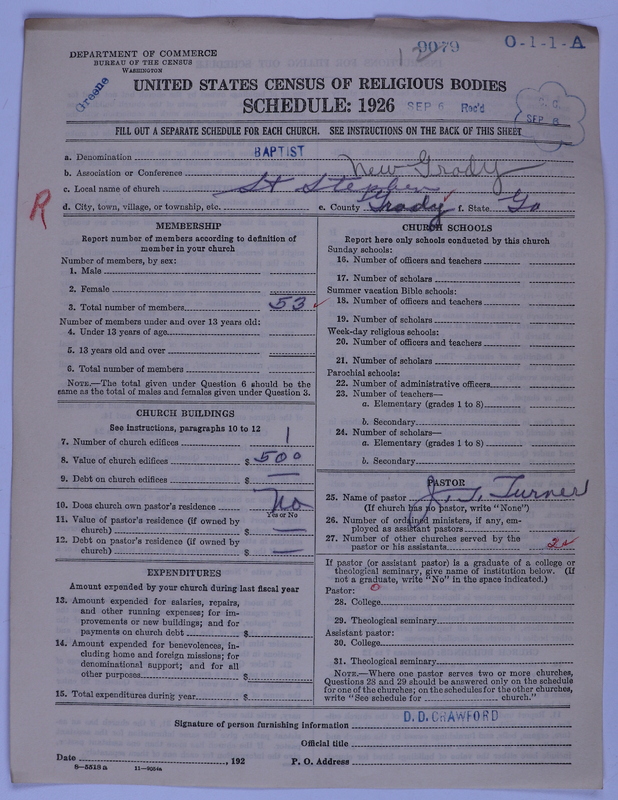 DEPARTMENT OF COMMERCE
BUREAU OF THE CENSUS
WASHINGTON
Greene
0079
O-1-1-A
UNITED STATES CENSUS OF RELIGIOUS BODIES
SCHEDULE: 1926
SEP 6 Rec'd
SEP 8
FILL OUT A SEPARATE SCHEDULE FOR EACH CHURCH. SEE INSTRUCTIONS ON THE BACK OF THIS SHEET
a. Denomination BAPTIST
b. Association or Conference New Grady
c. Local name of church St Stephen
d. City, town, village, or township, etc. e. County Grady f. State Ga
R
MEMBERSHIP
Report number of members according to definition of
member in your church
Number of members, by sex:
1. Male
2. Female
3. Total number of members 53
Number of members under and over 13 years old:
4. Under 13 years of age
5. 13 years old and over
6. Total number of members
NOTE.—The total given under Question 6 should be the
same as the total of males and females given under Question 3.
CHURCH BUILDINGS
See instructions, paragraphs 10 to 12
7. Number of church edifices 1
8. Value of church edifices $ 500
9. Debt on church edifices $ —
10. Does church own pastor's residence No
Yes or No
11. Value of pastor's residence (if owned by
church) $ —
12. Debt on pastor's residence (if owned by
church) $ —
EXPENDITURES
Amount expended by your church during last fiscal year
13. Amount expended for salaries, repairs,
and other running expenses; for im-
provements or new buildings; and for
payments on church debt $
14. Amount expended for benevolences, in-
cluding home and foreign missions; for
denominational support; and for all
other purposes $
15. Total expenditures during year $
CHURCH SCHOOLS
Report here only schools conducted by this church
Sunday schools:
16. Number of officers and teachers
17. Number of scholars
Summer vacation Bible schools:
18. Number of officers and teachers
19. Number of scholars
Week-day religious schools:
20. Number of officers and teachers
21. Number of scholars
Parochial schools:
22. Number of administrative officers
23. Number of teachers—
a. Elementary (grades 1 to 8)
b. Secondary
24. Number of scholars—
a. Elementary (grades 1 to 8)
b. Secondary
PASTOR
25. Name of pastor J. T. Turner
(If church has no pastor, write "None")
26. Number of ordained ministers, if any, em-
ployed as assistant pastors
27. Number of other churches served by the
pastor or his assistants
If pastor (or assistant pastor) is a graduate of a college or
theological seminary, give name of institution below. (If
not a graduate, write "No" in the space indicated.)
Pastor:
28. College
29. Theological seminary
Assistant pastor:
30. College
31. Theological seminary
NOTE.—Where one pastor serves two or more churches,
Questions 28 and 29 should be answered only on the schedule
for one of the churches; on the schedules for the other churches,
write "See schedule for church."
Signature of person furnishing information D. D. CRAWFORD
Official title
Date , 192 P. O. Address
8—5518a 11—9054a